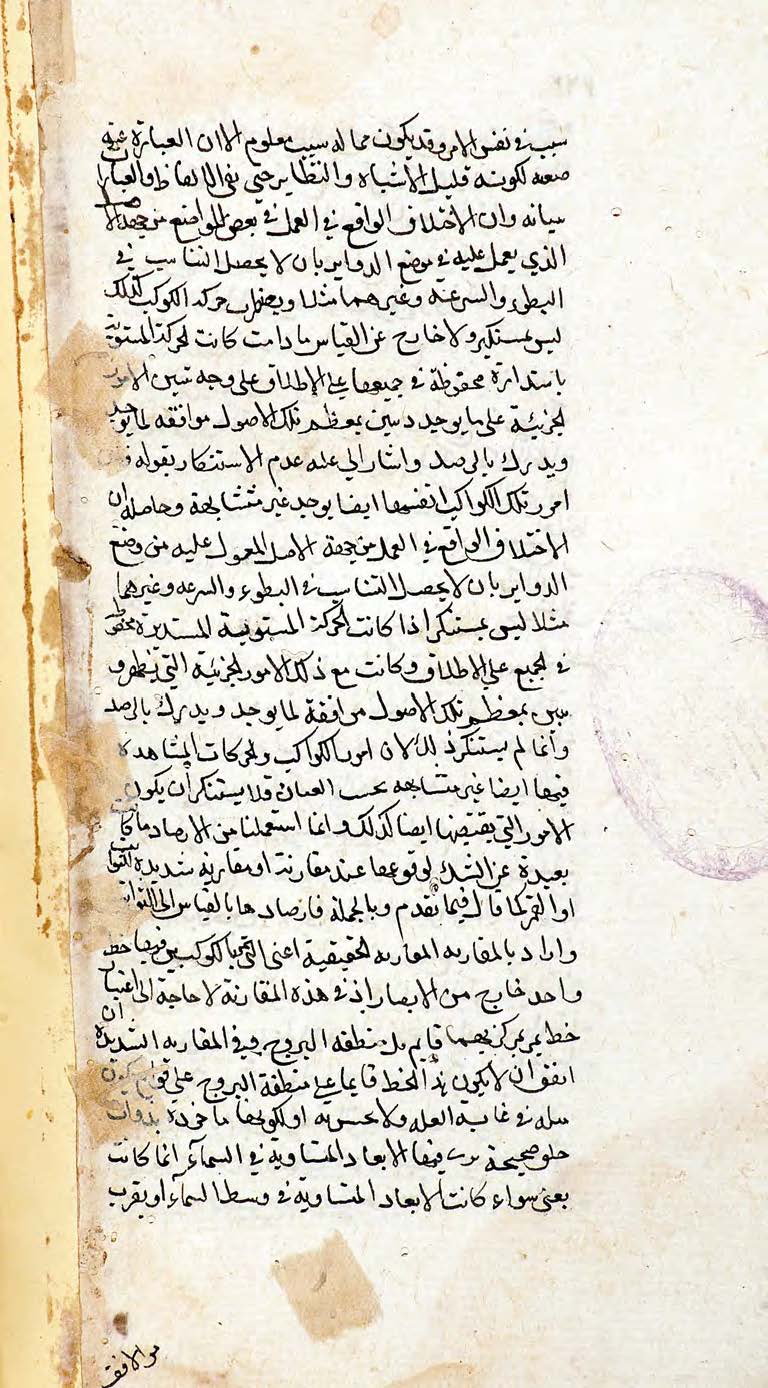 سبب فى نفس الامر وقد يكون مما له سبب معلوم الا ان العبارة عنه
صعبه لكونه قليل الاشباه والنظاير حتى فى الالفاظ والعبارا
بيانه وان الاختلاف الواقع في العمل فى بعض المواضع من جهة الاصل
الذي يعمل عليه فى موضع الدواير بان لا يحصل التناسب في
البطوء والسرعة وغيرهما مثلا حركة الكوكب كذلك
ليس بمستكبر ولا خارج عن القياس ما دامت كانت الحركة المستوية
باستدارة محفوظة فى جميعها على الاطلاق على وجه تبين الامور
الجزئية على ما يوجد بمعظم تلك الاصول موافقه لما يوجد
ويدرك بالرصد واشار الي علة عدم الاستنكار بقوله
امور تلك الكواكب انفسها ايضا يوجد غير متشابهة وحاصله ان
الاختلاف الواقع في العمل من جهة الاصل المعمول عليه من وضع
الدواير بان لا يحصل التناسب فى البطوء والسرعه وغيرهما
مثلا ليس بمستنكر اذا كانت الحركة المستوية المستديرة محفوظة
فى الجميع علي الاطلاق وكانت مع ذلك الامور الجزئية التي تظهر و
تبين بمعظم تلك الاصول موافقة لما يوجد ويدرك بالرصد
وانما لم يستنكر ذلك لان امور الكواكب والحركات المشاهده
فيها ايضا غير متشابهه بحسب العيان فلا يستنكر ان يكون
الامور التي يقتضيها ايضا كذلك وانما استعملنا من الارصاد ما كانت
بعيدة عن الشك لوقوعها عند مقارنة او مقاربة شديدة للثوابت
او القمر كما قال فيما تقدم وبالجملة فارصادها بالقياس الى الثوابت
واراد بالمقارنه المقارنه الحقيقية اعنى التي الكوكبين فيها خط
واحد خارج من الابصار اذ فى هذه المقارنة لا حاجة الى اعتبار
خط يمر بمركزيهما قايم على منطقه البروج وفى المقاربه الشديدة ان
اتفق ان لا يكون هذا الخط قايما على منطقة البروج علي قوايم كان
ميله فى غاية القله ولا يحس به او لكونها ماخوذة بذوات
حلق صحيحة نرى فيها الابعاد المتساوية فى السماء انما كانت
يعنى سواء كانت الابعاد المتساوية فى وسط السماء او بقرب
من الافق